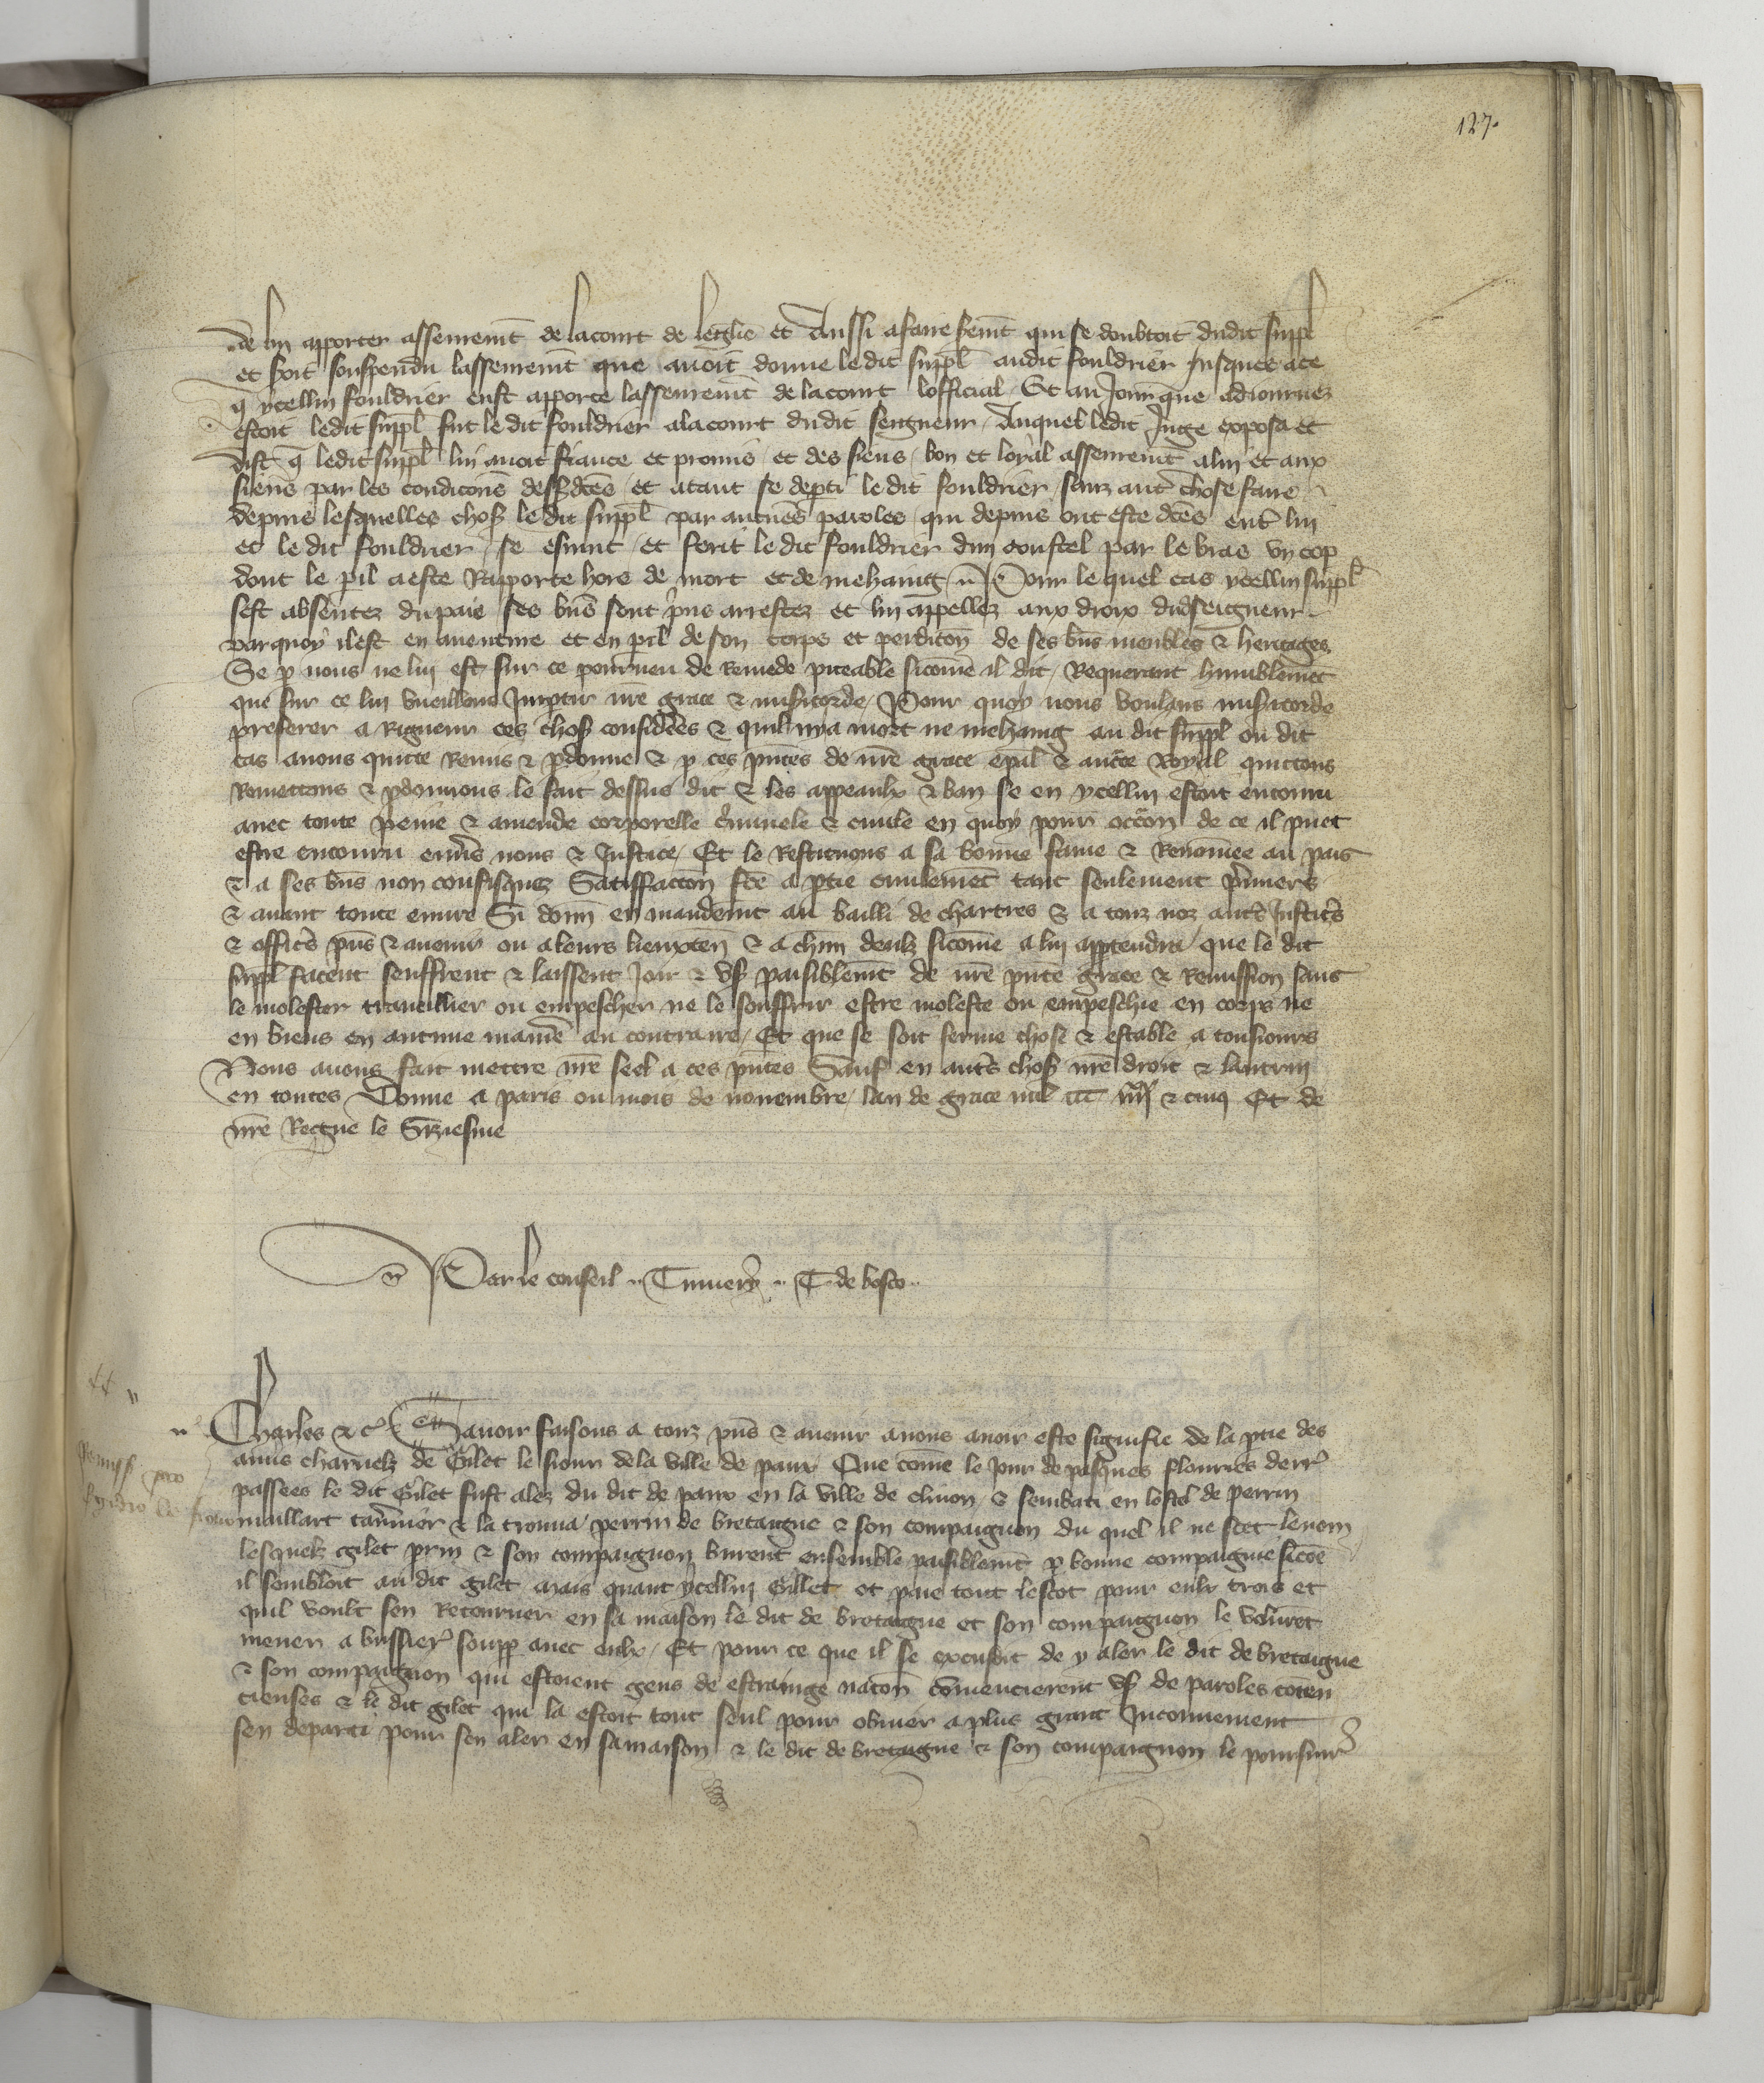 127.
de luy apporter assseuremēt de lacourt de leglise et Aussi a faire semēt qui se doubtoit dudit suppl̄
et soit souspendu lasseuremēt que auoit donne le dit suppl̄ audit fouldrier Jusques ace
q̄ ycelluy fouldrier eust apporte lasseuremēt de lacourt lofficial / Et au Jour que adiournez
estoit ledit suppl̄ fut le dit fouldrier alacourt dudit seigneur / Auquel ledit Juge exposa et
dist q̄ ledit suppl̄ lui auoit fiance et promis / et des siens / bon et loyal asseuremēt alui et aux
siens par les condicōns dessꝰdc̄es / et atant se dep̄ti le dit fouldrier / sanz aut̄ chose faire
depuis lesquelles choses le dit suppl̄ par aucūes paroles / qui depuis ont este dc̄es ent̄ lui
et le dit fouldrier / se esmut / et ferit le dit fouldrier dun coustel par le bras vn cop
dont le p̄il a este Rapporte hors de mort et de mehaing / Pour le quel cas ycelluy suppl̄
sest absentez du pais / ses bn̄s sont p̄ns arrestez et lui appellez aux droix dudseigneur
parquoy il est en auenture et en p̄il de son corps et perdicōn de ses bn̄s meubles & heritages
Se p̄ nous ne lui est sur ce pourueu de Remede piteable sicom̄e il dit / Requerant humblemēt
que sur ce lui vueillons Imp̄tir nr̄e grace & mis̄icorde / Pour quoy nous voulans mis̄icorde
preferer a Rigueur ces choses consid̄ees & quil ny a mort ne mehaing au dit suppl̄ ou dit
cas auons quicte Remis & p̄donne & p̄ ces pn̄tes de nr̄e grace esp̄al & auc̄te Royal quictons
Remettons & p̄donnons le fait dessus dit & les appeaulx & ban se en ycelluy estoit encouru
auec toute peine & amende corporelle c̄minele & ciuile en quoy pour occ̄on de ce il puet
estre encouru enūs nous & Justice / Et le Restituons a sa bonne fame & Renom̄ee au pais
& a ses bn̄s non confisquez Satisffaccōn fc̄e a p̄tie ciuilemēt tant seulement p̄miers
& auant toute euure Si donn̄ en mandemēt au bailli de chartres & a touz noz aut̄s Justic̄s
& offic̄s pn̄s & auenir ou a leurs lieuxten̄ & a ch̄un deulx sicom̄e a lui app̄tendra / que le dit
suppl̄ facent seuffrent & laissent Joir & vs̄ paisiblemēt de nr̄e pn̄te grace & Remission sans
le molester trauaillier ou empescher ne le souffrir estre moleste ou empeschie en corps ne
en biens en aucune manie᷑ au contraire / Et que se soit ferme chose & estable a tousiours
Nous auons fait mettre nr̄e seel a ces pn̄tes Sauf en aut̄s choses nr̄e droit & lautruy
en toutes Donne a paris ou mois de nouembre / lan de grace mil ccc iiiixx & cinq Et de
nr̄e Regne le Siziesme
Par le conseil .. T. de bosco ..
Charles &c̄ Sauoir faisons a touz pn̄s & auenir auons auoir este signifie de la p̄tie des
amis charnelz de Gilet le sieur dela ville de paux Que com̄e le Jour de pasques flouries derr̄
passees le dit Gilet fust alez du dit de paux en la ville de clinon & sembati en lostel de perrin
maillart taūnier & la trouua / perrin de bretaigne & son compaignon du quel il ne scet le nom
lesquelz gilet prin & son compaignon burent ensemble paisiblemēt p̄ bonne compaignie sicōe
il sembloit au dit gilet mais quant ycelluy Gillet ot paie tout lescot pour eulx trois et
quil voult sen Retourner en sa maison le dit de bretaigne et son compaignon le voluret
mener a souꝑ auec eulx / Et pour ce que il se excusoit de y aler le dit de bretaigne
& son compaignon qui estoient gens de estrainge nacōn cōmencierent vs̄ de paroles cōten
cieuses & le dit gilet qui la estoit tout seul pour obuier a plus grant Inconuenient
sen departi pour sen aler en sa maison & le dit de bretaigne & son compaignon le poursuir̄
Remiss̄ pro
Egidio le sieur